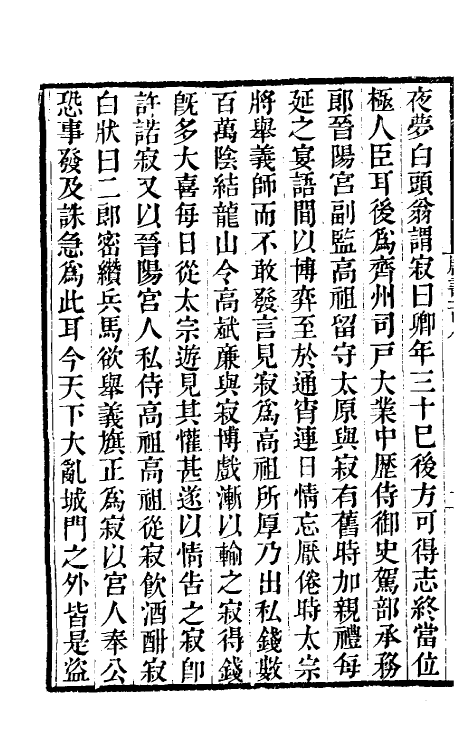 夜夢白頭翁謂寂曰卿年三十巳後方可得志終當位
極人臣耳後爲齊州司戸大業中歷侍御史駕部承務
郎晉陽宮副監高祖留守太原與寂有舊時加親禮每
延之宴語間以博弈至於通宵連日情忘厭倦時太宗
將舉義師而不敢發言見寂爲高祖所厚乃出私錢數
百萬陰結龍山令高斌廉與寂博戲漸以輸之寂得錢
旣多大喜每日從太宗遊見其懽甚遂以情告之寂卽
許諾寂又以晉陽宮人私侍高祖高祖從寂飮酒酣寂
白狀曰二郎密纘兵馬欲舉義旗正爲寂以宮人奉公
恐事發及誅急爲此耳今天下大亂城門之外皆是盜